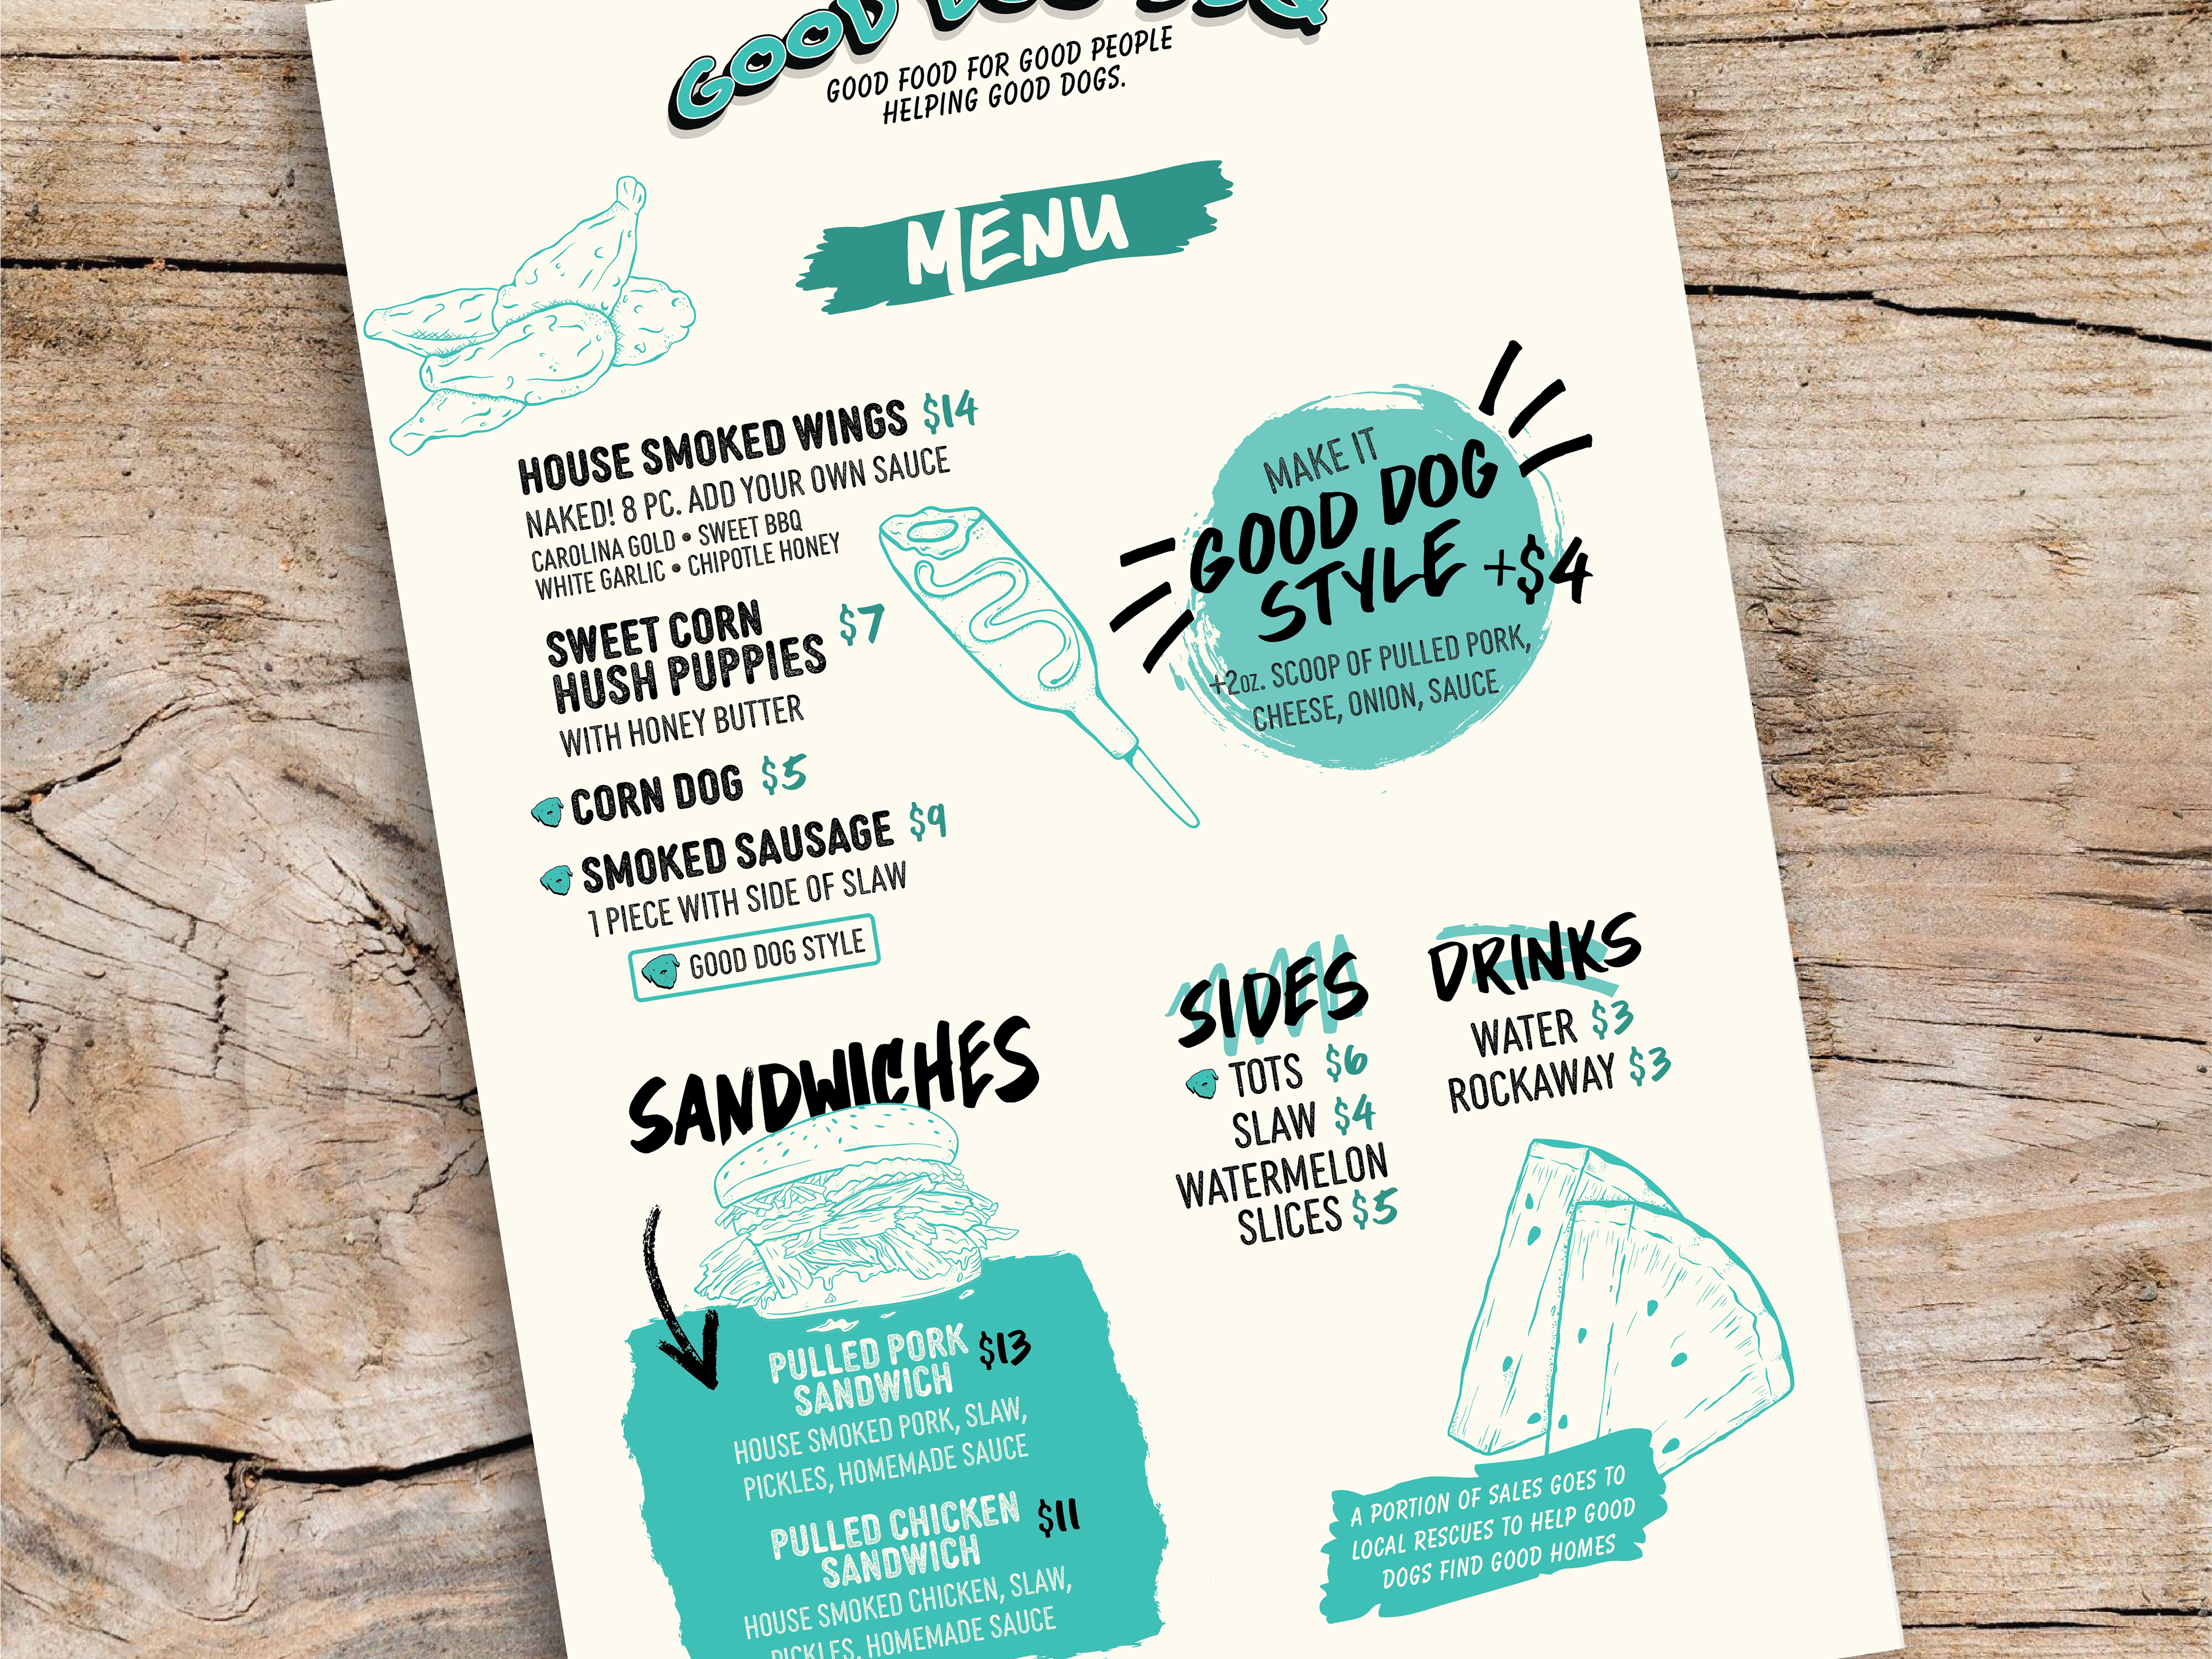 GOOD DOG BBQ
GOOD FOOD FOR GOOD PEOPLE
HELPING GOOD DOGS.
MENU
HOUSE SMOKED WINGS $14
NAKED! 8 PC. ADD YOUR OWN SAUCE
CAROLINA GOLD • SWEET BBQ
WHITE GARLIC • CHIPOTLE HONEY
SWEET CORN
HUSH PUPPIES $7
WITH HONEY BUTTER
CORN DOG $5
SMOKED SAUSAGE $9
1 PIECE WITH SIDE OF SLAW
GOOD DOG STYLE
MAKE IT
GOOD DOG
STYLE +$4
+2oz. SCOOP OF PULLED PORK,
CHEESE, ONION, SAUCE
SANDWICHES
PULLED PORK
SANDWICH $13
HOUSE SMOKED PORK, SLAW,
PICKLES, HOMEMADE SAUCE
PULLED CHICKEN
SANDWICH $11
HOUSE SMOKED CHICKEN, SLAW,
PICKLES, HOMEMADE SAUCE
SIDES
TOTS $6
SLAW $4
WATERMELON
SLICES $5
DRINKS
WATER $3
ROCKAWAY $3
A PORTION OF SALES GOES TO
LOCAL RESCUES TO HELP GOOD
DOGS FIND GOOD HOMES